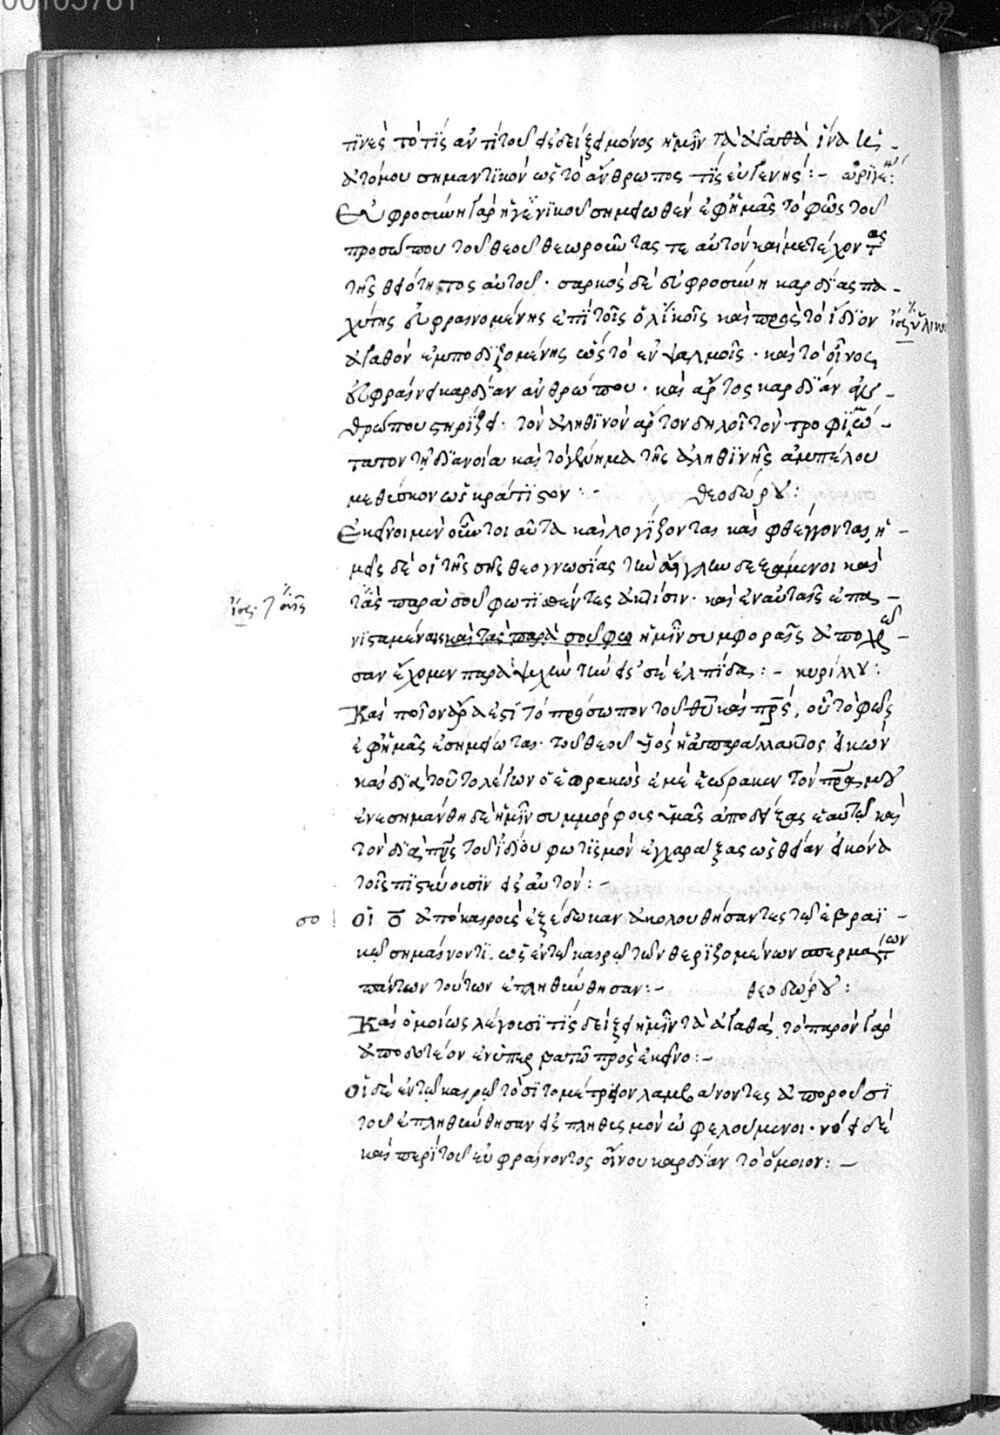 00105761
τινὲς τὸ τίς ἀντὶ τοῦ εἰ δείξει μόνος ἡμῖν τὰ ἀγαθὰ ἵνα
ἀτόμου σημαντικὸν ὡς τὸ ἄνθρωπος τίς εὐγενής :- ὠριγέ:
Εὐφροσύνη γὰρ ἡ γενικοῦ σημειωθὲν ἐφ ἡμᾶς τὸ φῶς τοῦ
προσώπου τοῦ θεοῦ θεωροῦντας τε αὐτὸν καὶ μετέχοντας
τῆς θεότητος αὐτοῦ · σαρκὸς δὲ εὐφροσύνη καρδίας πα-
χύτης εὐφραινομένης ἐπὶ τοῖς ὁλικοῖς καὶ πρὸς τὸ ἴδιον
ἴσ. ὑλικοῖς
ἀγαθὸν ἐμποδιζομένης ὡς τὸ ἐν ψαλμοῖς · καὶ τὸ οἶνος
εὐφραίνει καρδίαν ἀνθρώπου · καὶ ἄρτος καρδίαν ἀν-
θρώπου στηρίζει · τὸν ἀληθινὸν ἄρτον δηλοῖ τὸν τροφιμώ-
τατον τῇ διανοίᾳ καὶ τὸ γέννημα τῆς ἀληθινῆς ἀμπέλου
μεθύσκον ὡς κράτιστον :- θεοδώρου :
Ἐκεῖνοι μὲν οὕτοι αὐτὰ καὶ λογίζονται καὶ φθέγγονται ἡ-
μεῖς δὲ οἱ τῆς σῆς θεογνωσίας τὴν αἴγλην δεξάμενοι καὶ
ταῖς παρὰ σοῦ φωτισθέντες ἀκτίσιν · καὶ ἐν αὐταῖς ἐπα-
νισταμέναις καὶ τὰς παρὰ σοῦ φω ἡμῖν συμφοραῖς ἀποχρῶ-
σαν ἔχομεν παραψυχὴν τὴν εἰς σὲ ἐλπίδα :- κυρίλλου :
Καὶ ποῖον ἄρα ἐστὶ τὸ πρόσωπον τοῦ θυ καὶ πρς, οὗ τὸ φῶς
ἐφ ἡμᾶς ἐσημειώται · τοῦ θεοῦ υἱὸς ἡ ἀπαράλλακτος εἰκὼν
καὶ διὰ τοῦτο λέγων ὁ ἑωρακὼς ἐμὲ ἑώρακεν τὸν πρα μου
ἐνεσημάνθη δὲ ἡμῖν συμμόρφους ἡμᾶς ἀποδείξας ἑαυτῷ καὶ
τὸν διὰ πρς τοῦ ἰδίου φωτισμὸν ἐγχαράξας ὡς θείαν εἰκόνα
τοῖς πιστεύουσιν εἰς αὐτόν :-
σο οἱ ο ἀπὸ καιροῦ ἐξέδωκαν ἀκολουθήσαντες τῷ ἑβραϊ-
κῷ σημαίνοντι · ὡς ἐν τῷ καιρῷ τῶν θεριζομένων σπερμάτων
πάντων τούτων ἐπληθύνθησαν :- θεοδώρου :
Καὶ ὁμοίως λέγουσι τίς δείξει ἡμῖν τὰ ἀγαθά, τὸ παρὸν γὰρ
πρὸς ἐκεῖνο :-
Οἱ δὲ ἐν τῷ καιρῷ τὸ σιτομέτριον λαμβάνοντες ἀποροῦσι
τοῦ ἐπληθύνθησαν εἰς πλησμονὴν ὠφελούμενοι · νόει δὲ
καὶ περὶ τοῦ εὐφραίνοντος οἴνου καρδίαν τὸ ὅμοιον :-